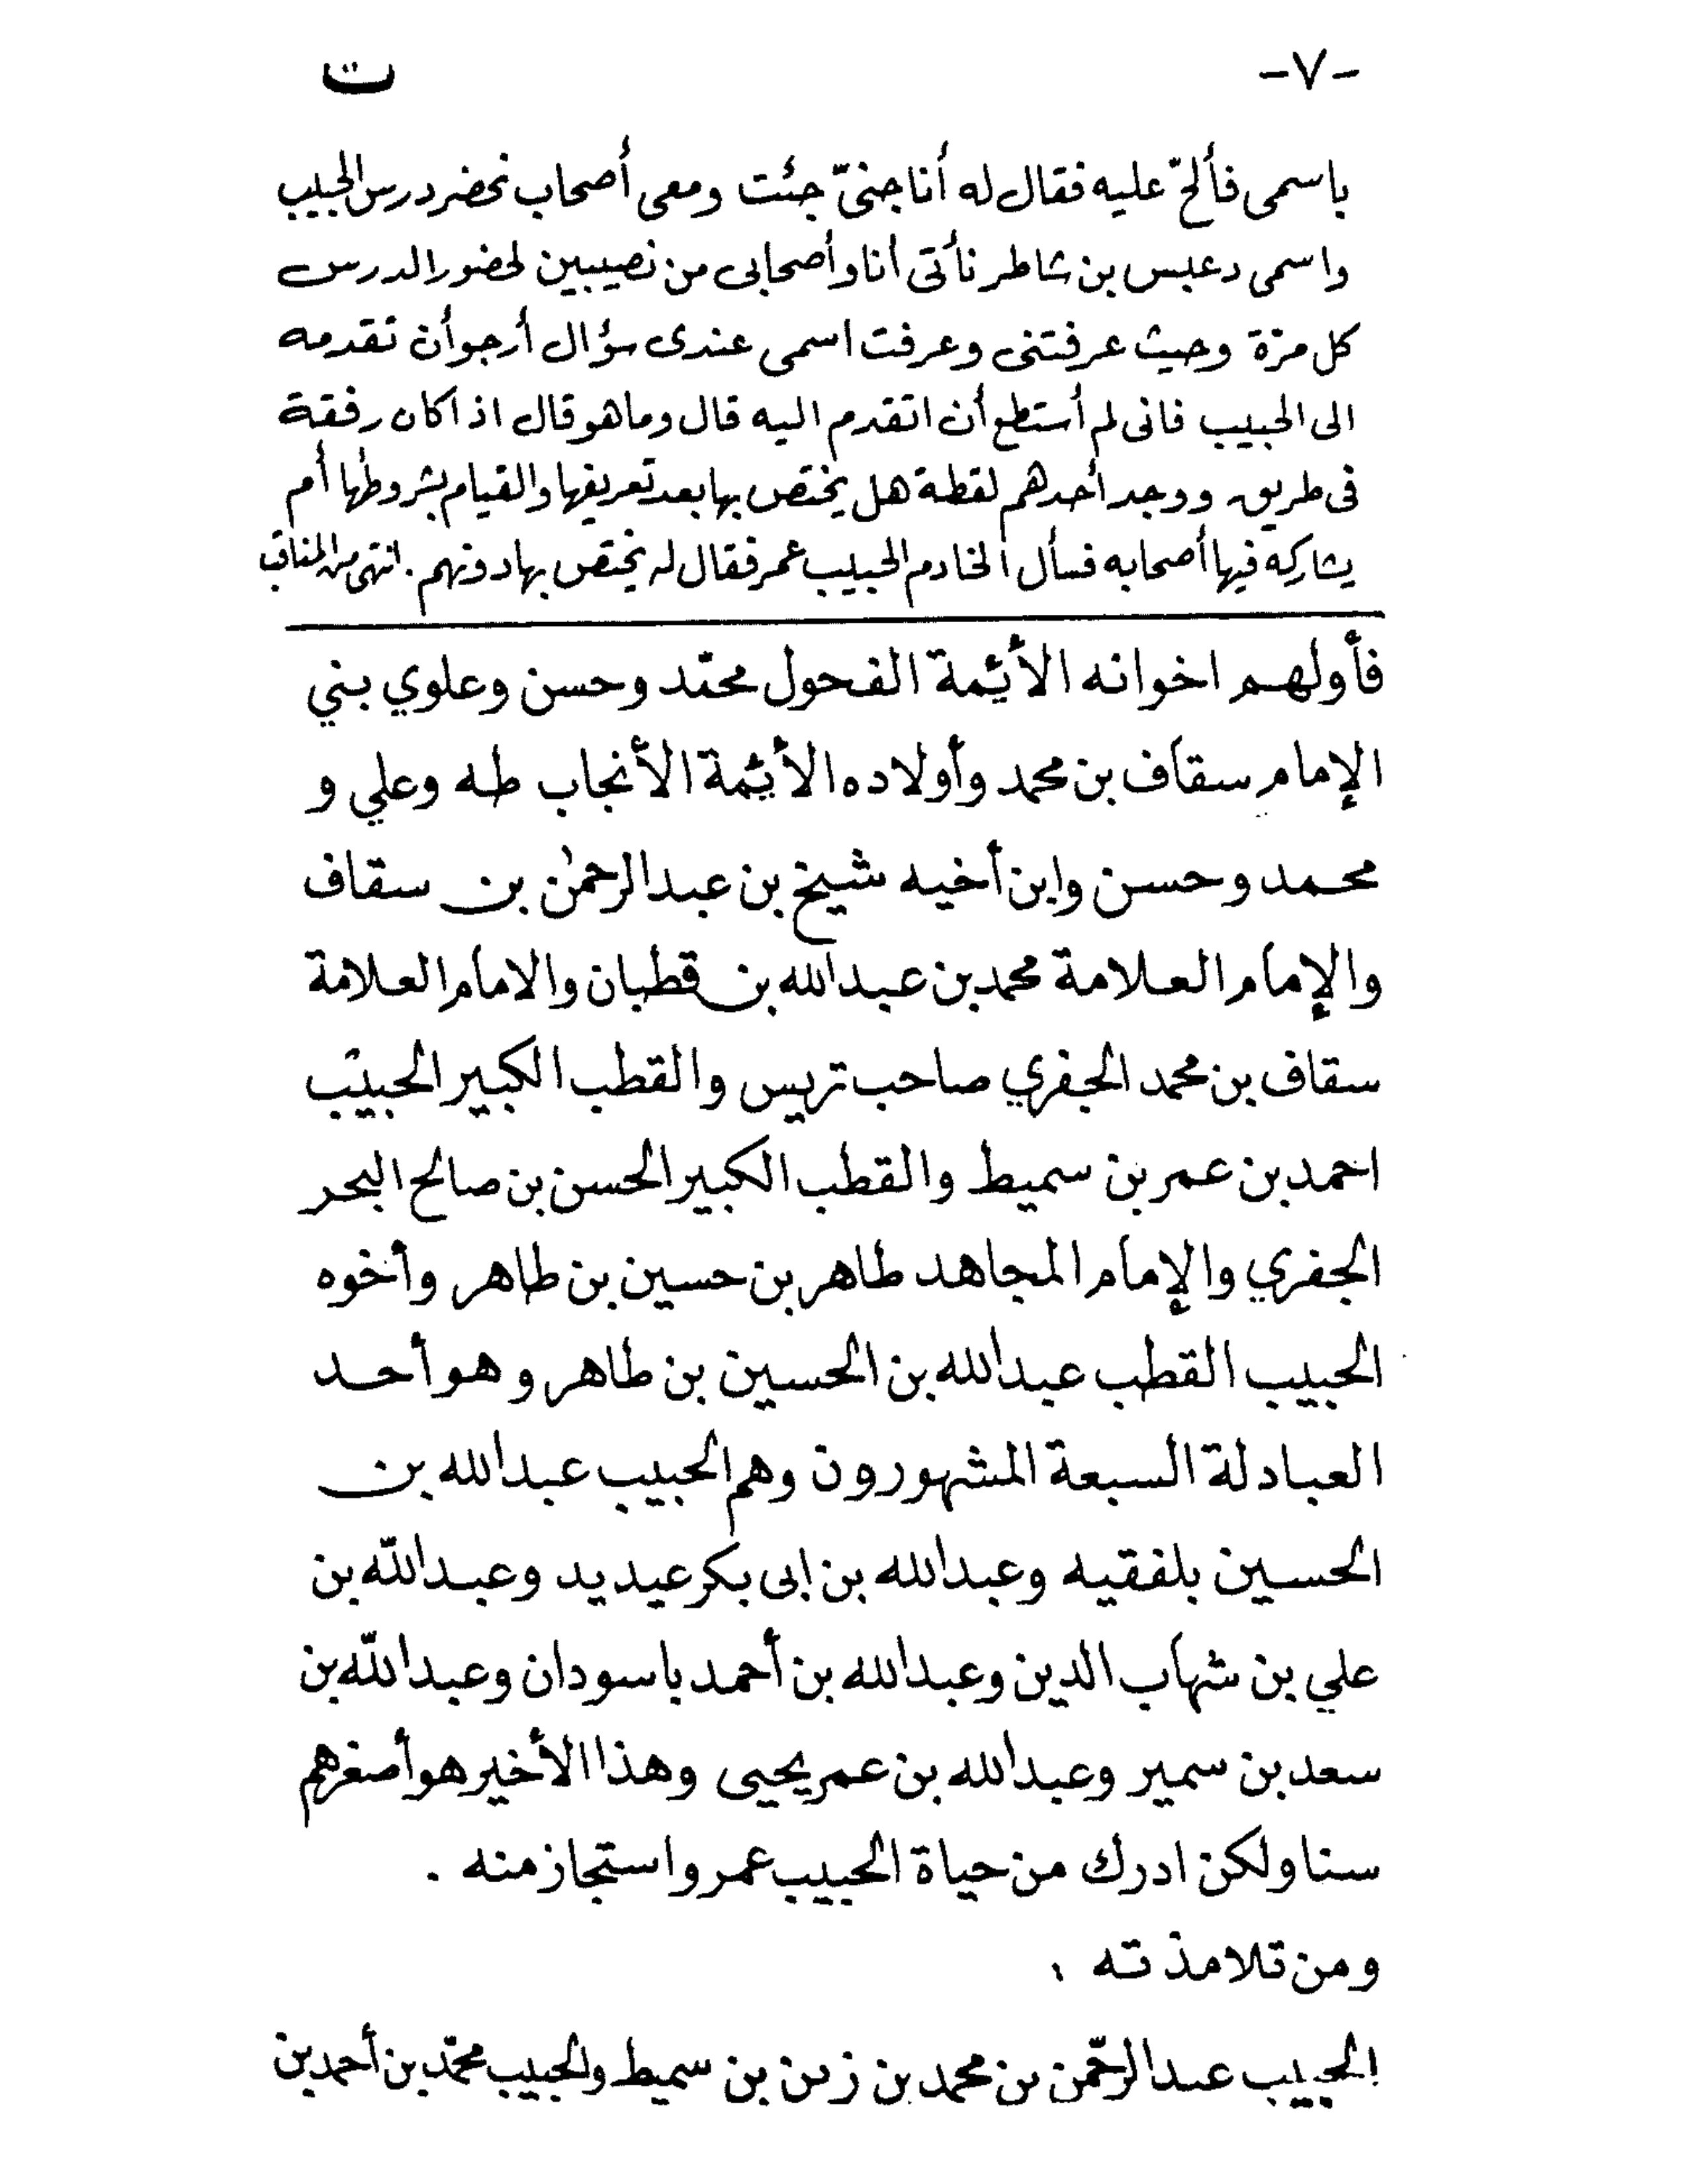 -٧- ت
باسمى فألحّ عليه فقال له أنا جنىّ جئت ومعى أصحاب نحضر درس الحبيب
واسمى دعبس بن شاطر نأتى أنا وأصحابى من نصيبين لحضور الدرس
كل مرّة وحيث عرفتنى وعرفت اسمى عندى سؤال أرجو أن تقدمه
الى الحبيب فانى لم أستطع أن اتقدم اليه قال وما هو قال اذا كان رفقة
فى طريق ووجد أحدهم لقطة هل يختص بها بعد تعريفها والقيام بشروطها أم
يشاركه فيها أصحابه فسأل الخادم الحبيب عمر فقال له يختص بها دونهم . انتهى من المناقب
فأولهم اخوانه الأئيمة الفحول محمّد وحسن وعلوي بني
الإمام سقاف بن محمد وأولاده الأئيمة الأنجاب طه وعلي و
محمد وحسن وابن أخيه شيخ بن عبدالرحمٰن بن سقاف
والإمام العلامة محمد بن عبدالله بن قطبان والامام العلامة
سقاف بن محمد الجفري صاحب تريس والقطب الكبير الحبيب
احمد بن عمر بن سميط والقطب الكبير الحسن بن صالح البحر
الجفري والإمام المجاهد طاهر بن حسين بن طاهر وأخوه
الحبيب القطب عبدالله بن الحسين بن طاهر وهو أحد
العبادلة السبعة المشهورون وهم الحبيب عبدالله بن
الحسين بلفقيه وعبدالله بن ابى بكر عيديد وعبداللّه بن
علي بن شهاب الدين وعبدالله بن أحمد باسودان وعبداللّه بن
سعد بن سمير وعبدالله بن عمر يحيى وهذا الأخير هو أصغرهم
سنا ولكن ادرك من حياة الحبيب عمر واستجاز منه .
ومن تلامذته :
الحبيب عبدالرحّمن بن محمد بن زين بن سميط والحبيب محمّد بن أحمد بن